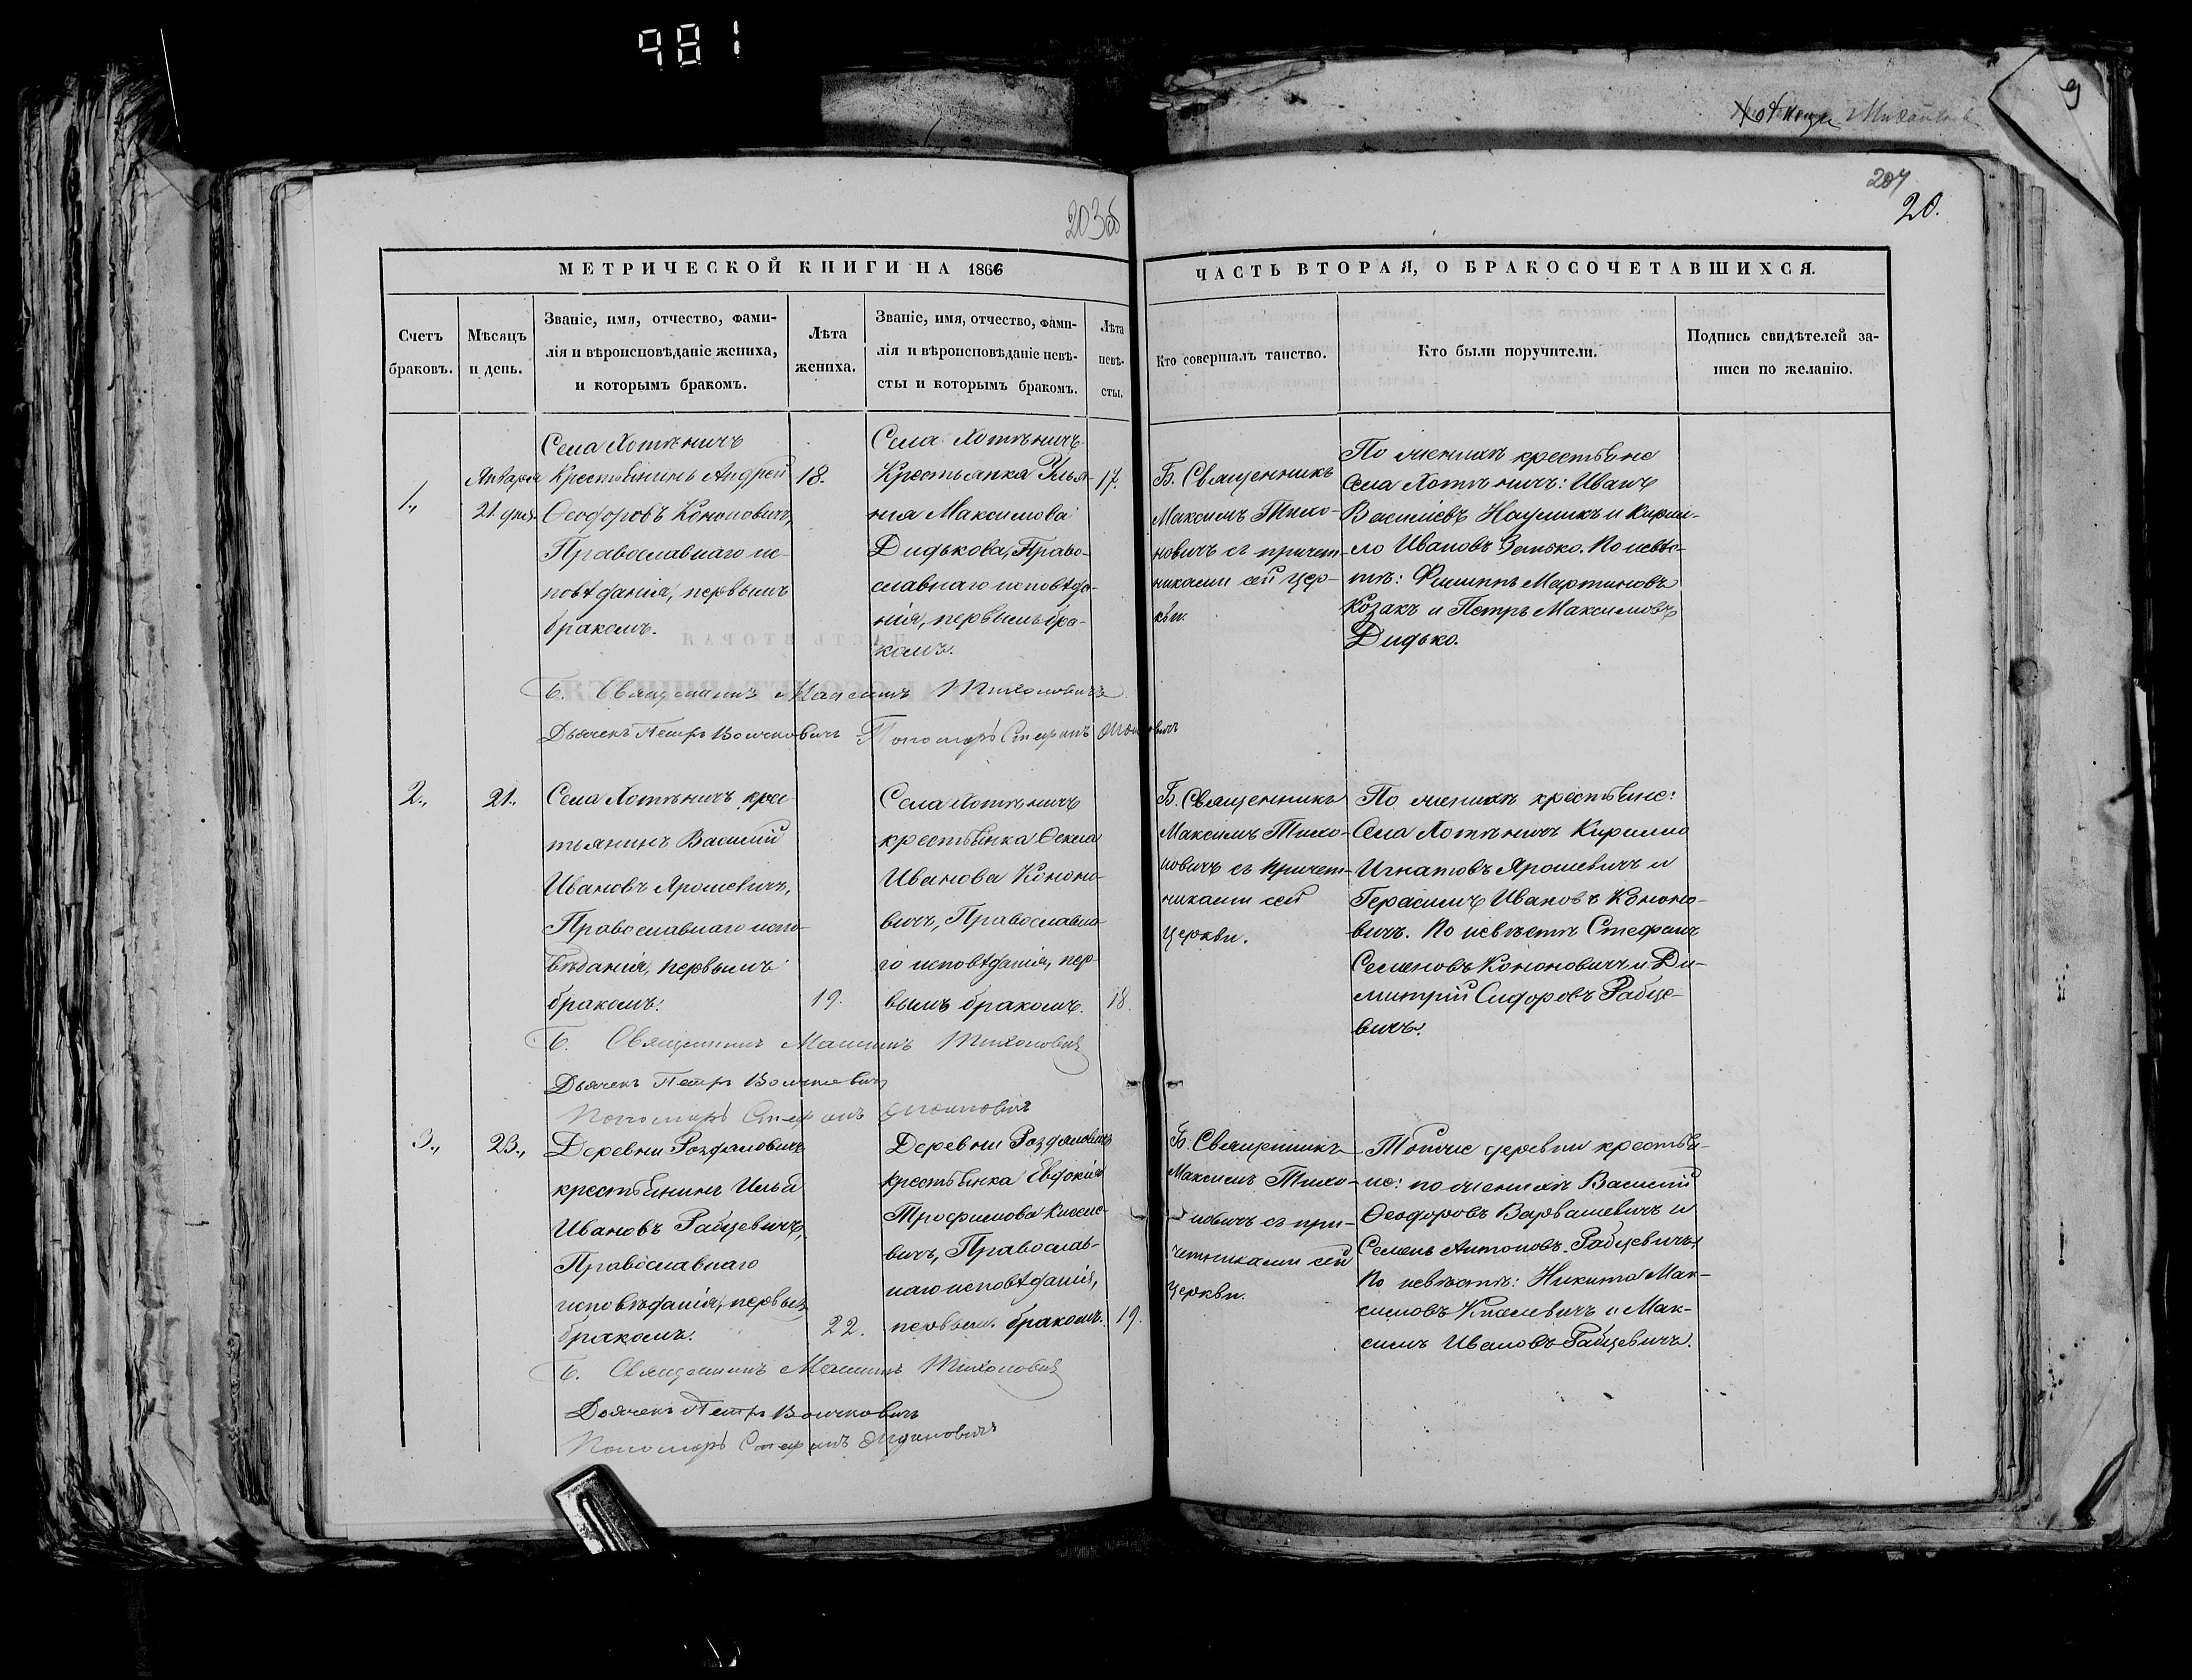 981
9
203об
204
20.
МЕТРИЧЕСКОЙ КНИГИ НА 1866
ЧАСТЬ ВТОРАЯ, О БРАКОСОЧЕТАВШИХСЯ.
Счетъ
браковъ.
Мѣсяцъ
и день.
Званіе, имя, отчество, фами-
лія и вѣроисповѣданіе жениха,
и которымъ бракомъ.
Лѣта
жениха.
Званіе, имя, отчество, фами-
лія и вѣроисповѣданіе невѣ-
сты и которымъ бракомъ.
Лѣта
невѣ-
сты.
Кто совершалъ таинство.
Кто были поручители.
Подпись свидѣтелей за-
писи по желанію.
1.,
Января
21. дня.
Села Хотѣничъ
Крестьянинъ Андрей
Ѳеодоровъ Кононовичъ,
Православнаго ис-
повѣданія, первымъ
бракомъ.
18.
Села Хотѣничъ
Крестьянка Улья-
ния Максимова
Дидькова, Право-
славнаго исповѣда-
нія, первымъ бра-
комъ.
17.
Б. Священникъ
Максимъ Тихо-
новичъ съ причет-
никами сей Цер-
кви.
По женихѣ крестьяне
Села Хотѣничъ: Иванъ
Василіевъ Наумикъ и Кирил-
ло Ивановъ Зенько. По невѣс-
тѣ: Филиппъ Мартиновъ
Козакъ и Петръ Максимовъ
Дидько.
Б. Священникъ Максимъ Тихоновичъ
Дьячекъ Петръ Волчковичъ Пономарь Стефанъ
2.,
21.,
Села Хотѣничъ крес-
тьянинъ Василий
Ивановъ Ярошевичъ,
Православнаго испо-
вѣданія, первымъ
бракомъ.
19.
Села Хотѣничъ
крестьянка Ѳекла
Иванова Кононо-
вичъ, Православна-
го исповѣданія, пер-
вымъ бракомъ.
18.
Б. Священникъ
Максимъ Тихо-
новичъ съ причет-
никами сей
Церкви.
По женихѣ крестьяне:
Села Хотѣничъ Кирилло
Игнатовъ Ярошевичъ и
Герасимъ Ивановъ Кононо-
вичъ. По невѣстѣ Стефанъ
Семеновъ Кононовичъ и Ди-
митрій Сидоровъ Рабце-
вичъ.
Б. Священникъ Максимъ Тихоновичъ
Дьячекъ Петръ Волчковичъ
Пономарь Стефанъ
3.,
23.,
Деревни Роздяловичъ
крестьянинъ Илья
Ивановъ Рабцевичъ,
Православнаго
исповѣданія, первымъ
бракомъ.
22.
Деревни Роздяловичъ
крестьянка Евдокія
Трофимова
вичъ, Православ-
наго исповѣданія,
первым. бракомъ.
19.
Б. Священникъ
Максимъ Тихо-
новичъ съ при-
четниками сей
Церкви.
Тойже деревни крестья-
не: по женихѣ Василий
Ѳеодоровъ Варвашевичъ и
Семенъ Антоновъ Рабцевичъ.
По невѣстѣ: Никита Мак-
симовъ и Мак-
симъ Ивановъ Рабцевичъ.
Б. Священникъ Максимъ Тихоновичъ
Дьячекъ Петръ Волчковичъ
Пономарь Стефанъ